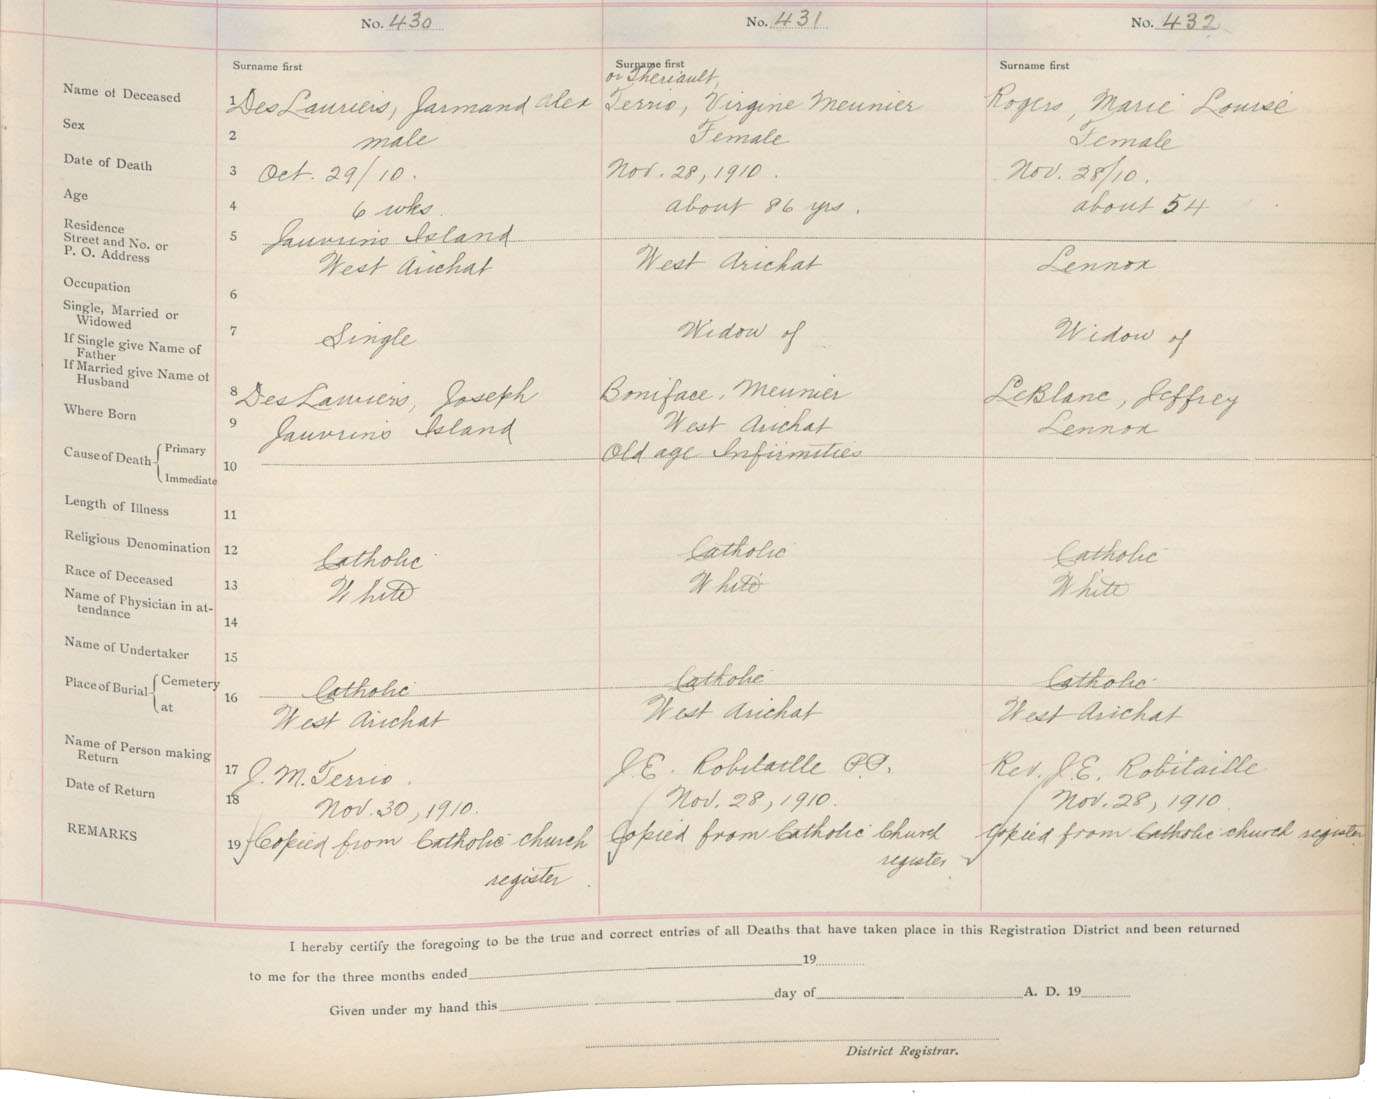 No. 430
No. 431
No. 432
Surname first
Surname first
Surname first
or Theriault,
Name of Deceased 1 DesLauriers, Jarmand Alex
Terrio, Virgine Meunier
Rogers, Marie Louise
Sex 2 male
Female
Female
Date of Death 3 Oct. 29/10.
Nov. 28, 1910.
Nov. 28/10.
Age 4 6 wks.
about 86 yrs.
about 54
Residence
Street and No. or
P. O. Address
5 Jauvrins Island
West Arichat
West Arichat
Lennox
Occupation 6
Single, Married or
Widowed
7 Single
Widow of
Widow of
If Single give Name of
Father
If Married give Name of
Husband
8 DesLauriers, Joseph
Boniface, Meunier
LeBlanc, Jeffrey
Where Born 9 Jauvrins Island
West Arichat
Lennox
Cause of Death Primary
Immediate
10
Old age Infirmities
Length of Illness 11
Religious Denomination 12 Catholic
Catholic
Catholic
Race of Deceased 13 White
White
White
Name of Physician in at-
tendance
14
Name of Undertaker 15
Place of Burial Cemetery
at
16 Catholic
West Arichat
Catholic
West Arichat
Catholic
West Arichat
Name of Person making
Return
17 J. M. Terrio.
J. E. Robitaille P.P.
Rev. J. E. Robitaille
Date of Return 18 Nov. 30, 1910.
Nov. 28, 1910.
Nov. 28, 1910.
REMARKS 19 Copied from Catholic church
register.
Copied from Catholic Church
register
Copied from Catholic church register
I hereby certify the foregoing to be the true and correct entries of all Deaths that have taken place in this Registration District and been returned
to me for the three months ended 19
Given under my hand this day of A. D. 19
District Registrar.